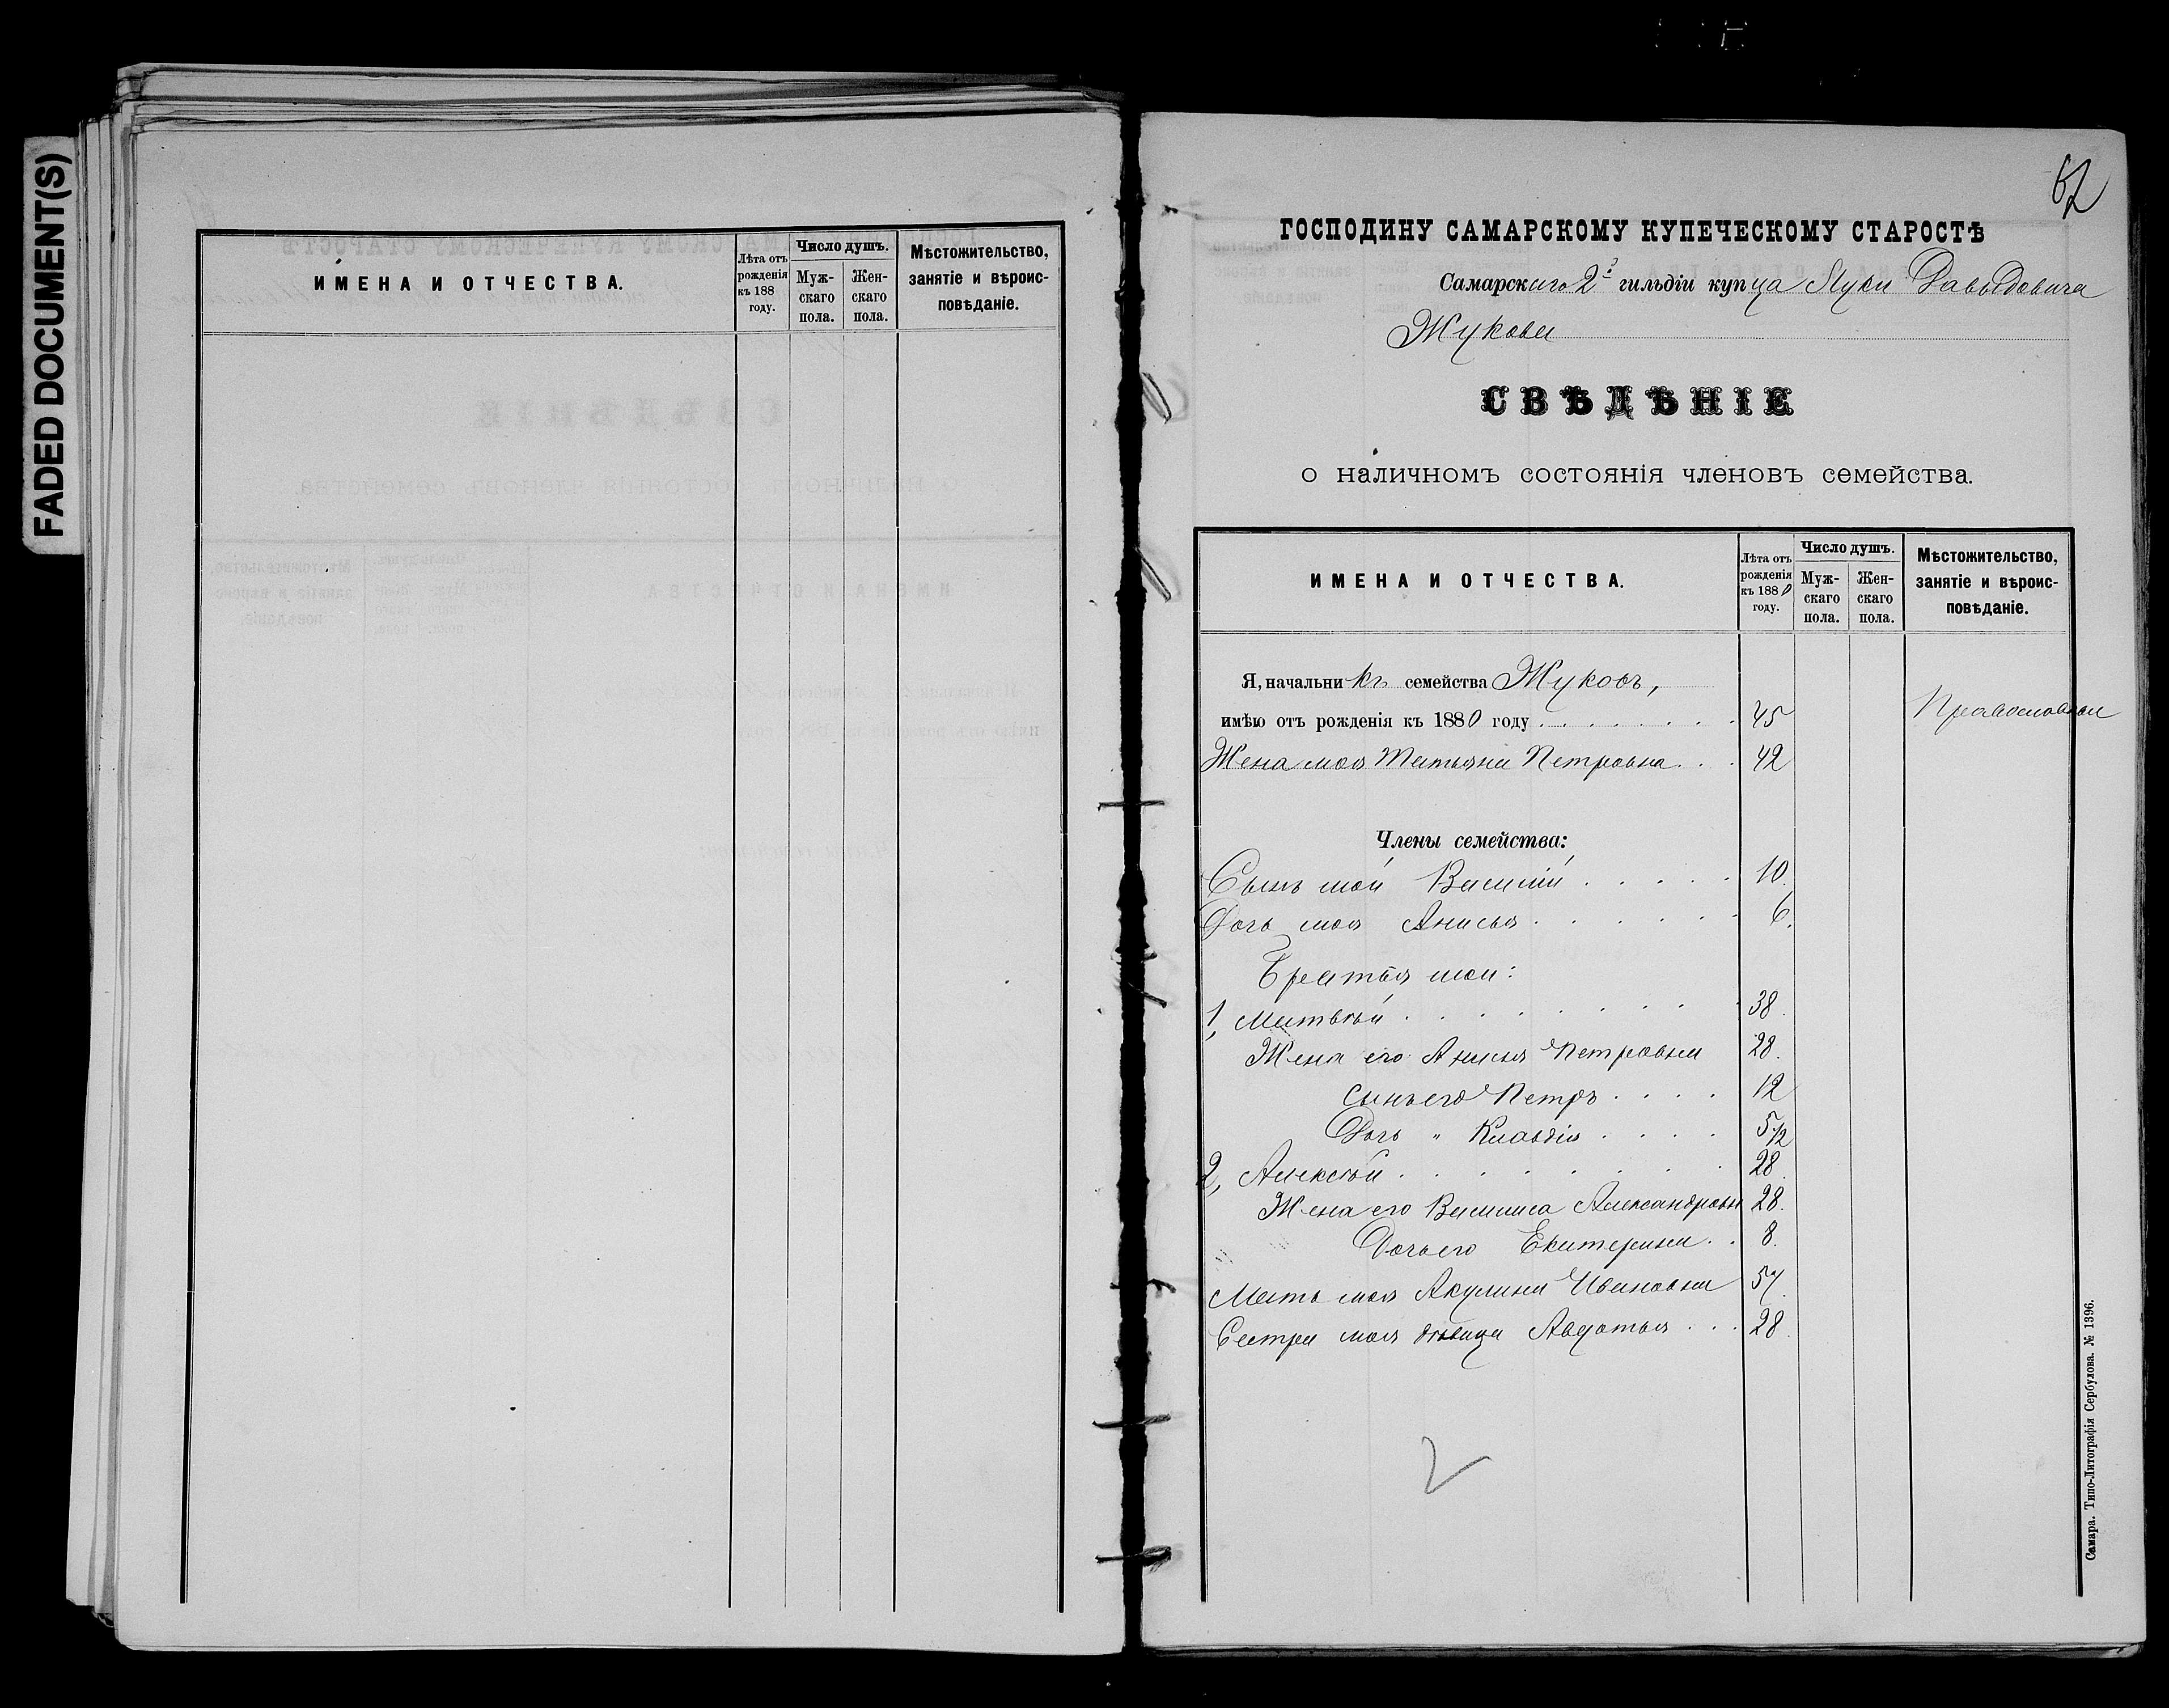 FADED DOCUMENT(S)
ИМЕНА И ОТЧЕСТВА.
Лѣта отъ рожденія къ 188 году.
Число душъ.
Муж-скаго пола.
Жен-скаго пола.
Мѣстожительство, занятіе и вѣроис-повѣданіе.
62
ГОСПОДИНУ САМАРСКОМУ КУПЕЧЕСКОМУ СТАРОСТѢ
Самарскаго 2й гильдіи купца Луки Давыдовича
Жукова
СВѢДѢНІЕ
о наличномъ состоянія членовъ семейства.
ИМЕНА И ОТЧЕСТВА.
Лѣта отъ рожденія къ 1880 году.
Число душъ.
Муж-скаго пола.
Жен-скаго пола.
Мѣстожительство, занятіе и вѣроис-повѣданіе.
Я, начальникъ семейства Жуковъ,
имѣю отъ рожденія къ 1880 году 45 Православная
Жена моя Татьяна Петровна 42
Члены семейства:
Сынъ мой Василій 10
Дочь моя Анисья 6.
Братья мои:
1, Матвѣй 38.
Жена его Анисья Петровна 28.
сынъ его Петръ 12
Дочь " Клавдія 5 1/2
2, Алексѣй 28.
Жена его Василиса Александровн 28.
Дочь его Екатерина 8.
Мать моя Акулина Ивановна 57.
Сестра моя дѣвица Авдотья 28.
2
Самара. Типо-Литографія Сербулова. № 1396.